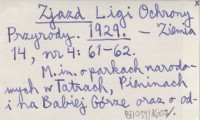 Zjazd Ligi Ochrony
Przyrody. 1929. — Ziemia
14, nr 4: 61-62.
M. in. o parkach narodo-
wych w Tatrach, Pieninach
i na Babiej Górze oraz o od-